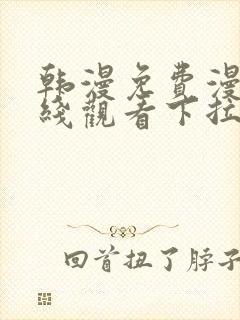 韩漫免費漫
綫觀看下拉
回首扭了脖子